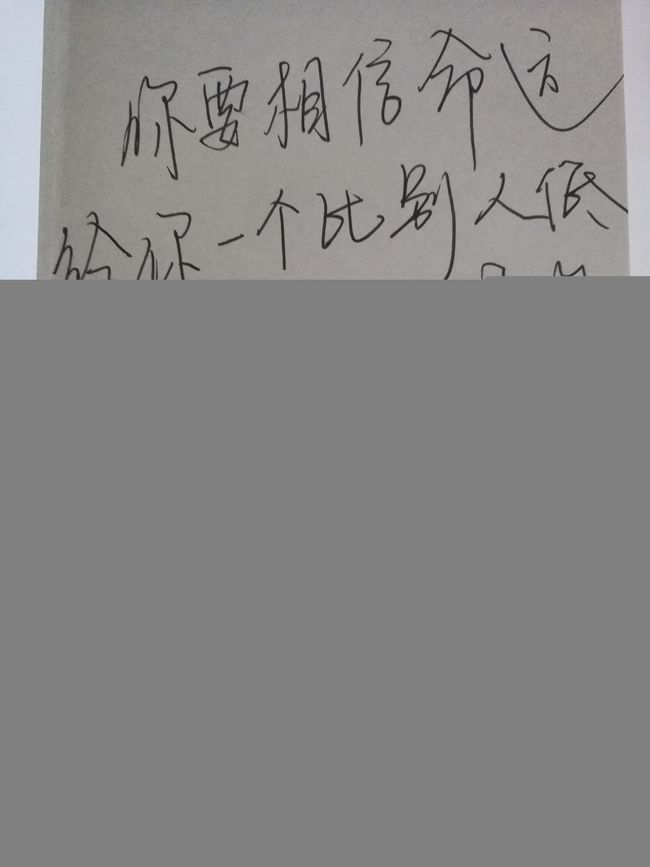 你要相信命运
给你一个比别人低